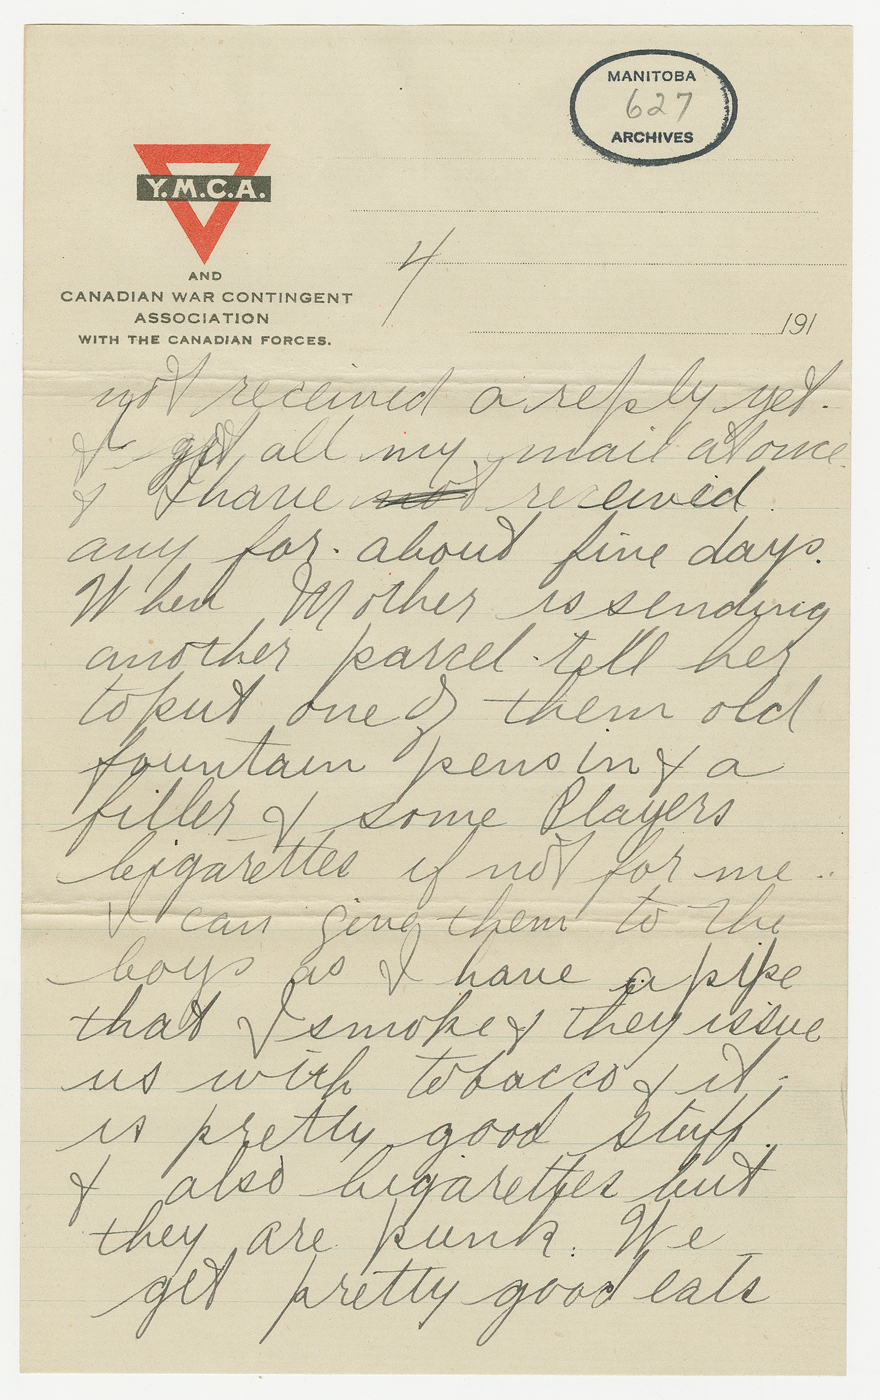 MANITOBA
627
ARCHIVES
Y.M.C.A.
AND
CANADIAN WAR CONTINGENT
ASSOCIATION
WITH THE CANADIAN FORCES.
4
191
not received a reply yet.
I got all my mail at once
& I have not received
any for about five days.
When Mother is sending
another parcel tell her
to put one of them old
fountain pens in & a
filler & some Players
Cigarettes if not for me
I can give them to the
boys as I have a pipe
that I smoke & they issue
us with tobacco & it
is pretty good stuff.
& also Cigarettes but
they are punk. We
get pretty good eats